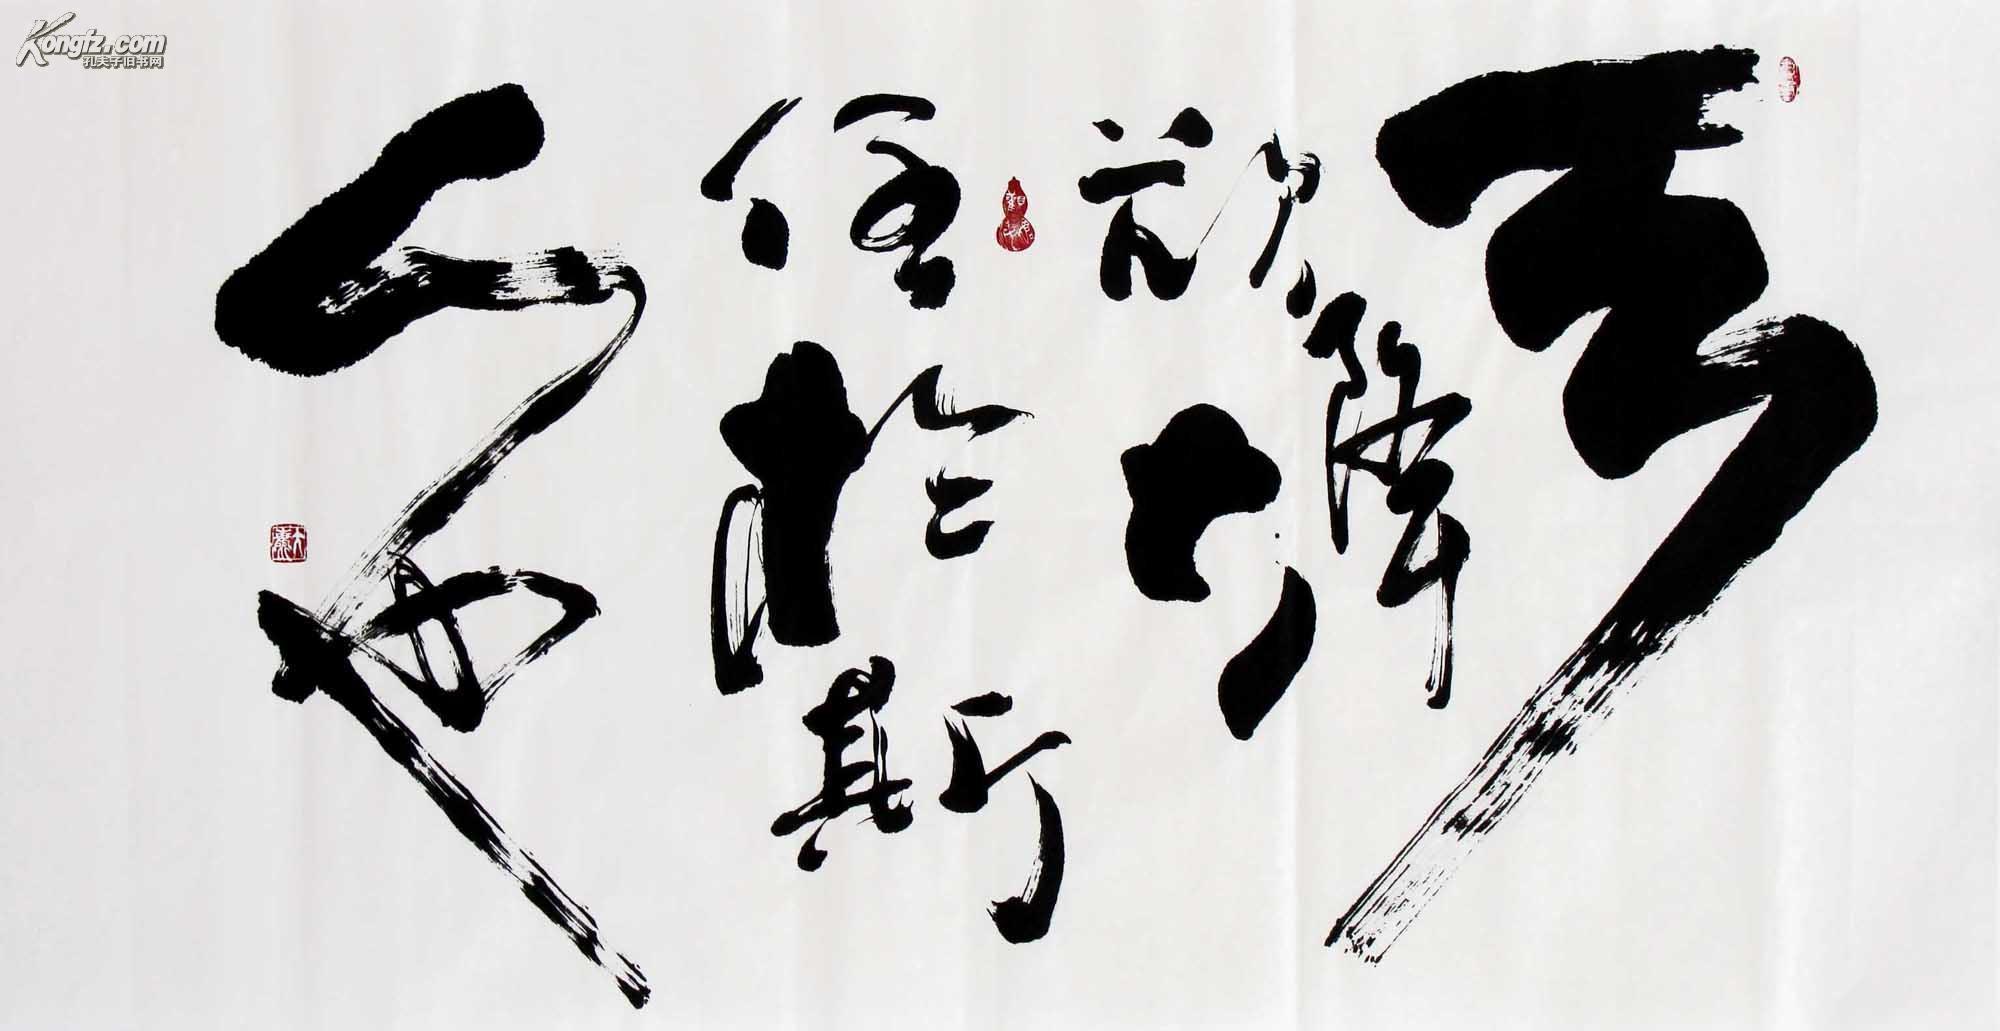 Kongfz.com
孔夫子旧书网
天
欲降大
任於斯
人也